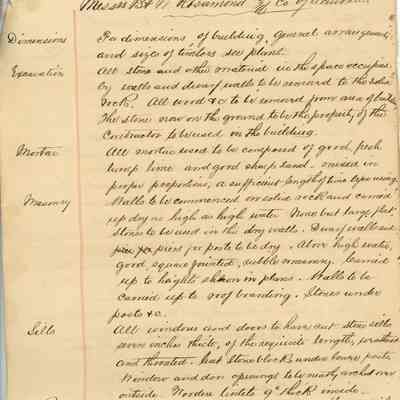 Messrs B & W Rosamond & Co of
Dimensions For dimensions of building, general arrangement
and size of timbers see plans.
Excavation All stone and other material in the space occupied
by walls and dwarf walls to be removed to the solid
rock. All wood &c to be removed from area of building
The stone now on the ground to be the property of the
contractor to be used in the building.
Mortar All mortar used to be composed of good fresh
lump lime and good sharp sand - mixed in
proper proportions, a sufficient length of time before using.
Masonry Walls to be commenced on solid rock and carried
up dry as high as high water None but large flat
stones to be used in the dry walls. Dwarf walls and
piers for posts to be dry. Above high water,
good square jointed, rubble masonry. Carried
up to heights shown in plans. Walls to be
carried up to roof boarding. Stones under
posts &c.
Sills All windows and doors to have cut stone sills
seven inches thick, of the requisite length, weathered
and throated. Cut stone blocks under posts
Window and door openings to be neatly arched over
outside. Wooden lintels 9" thick inside.